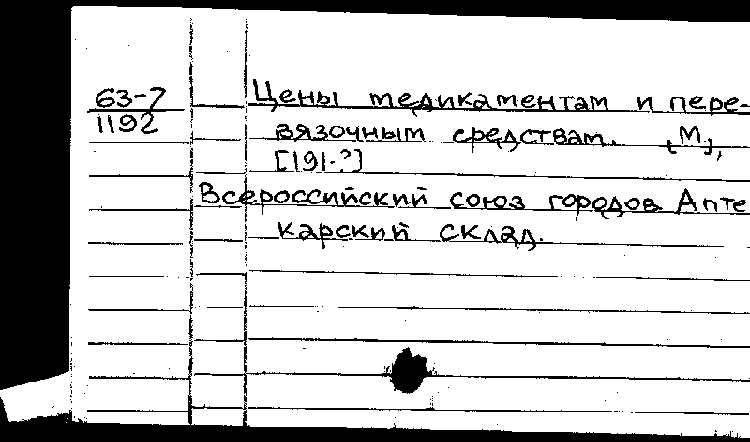 63-7
1192
Цены медикаментам и пере-
вязочным средствам. [М],
[191-?]
Всероссийский союз городов Апте
карский склад.